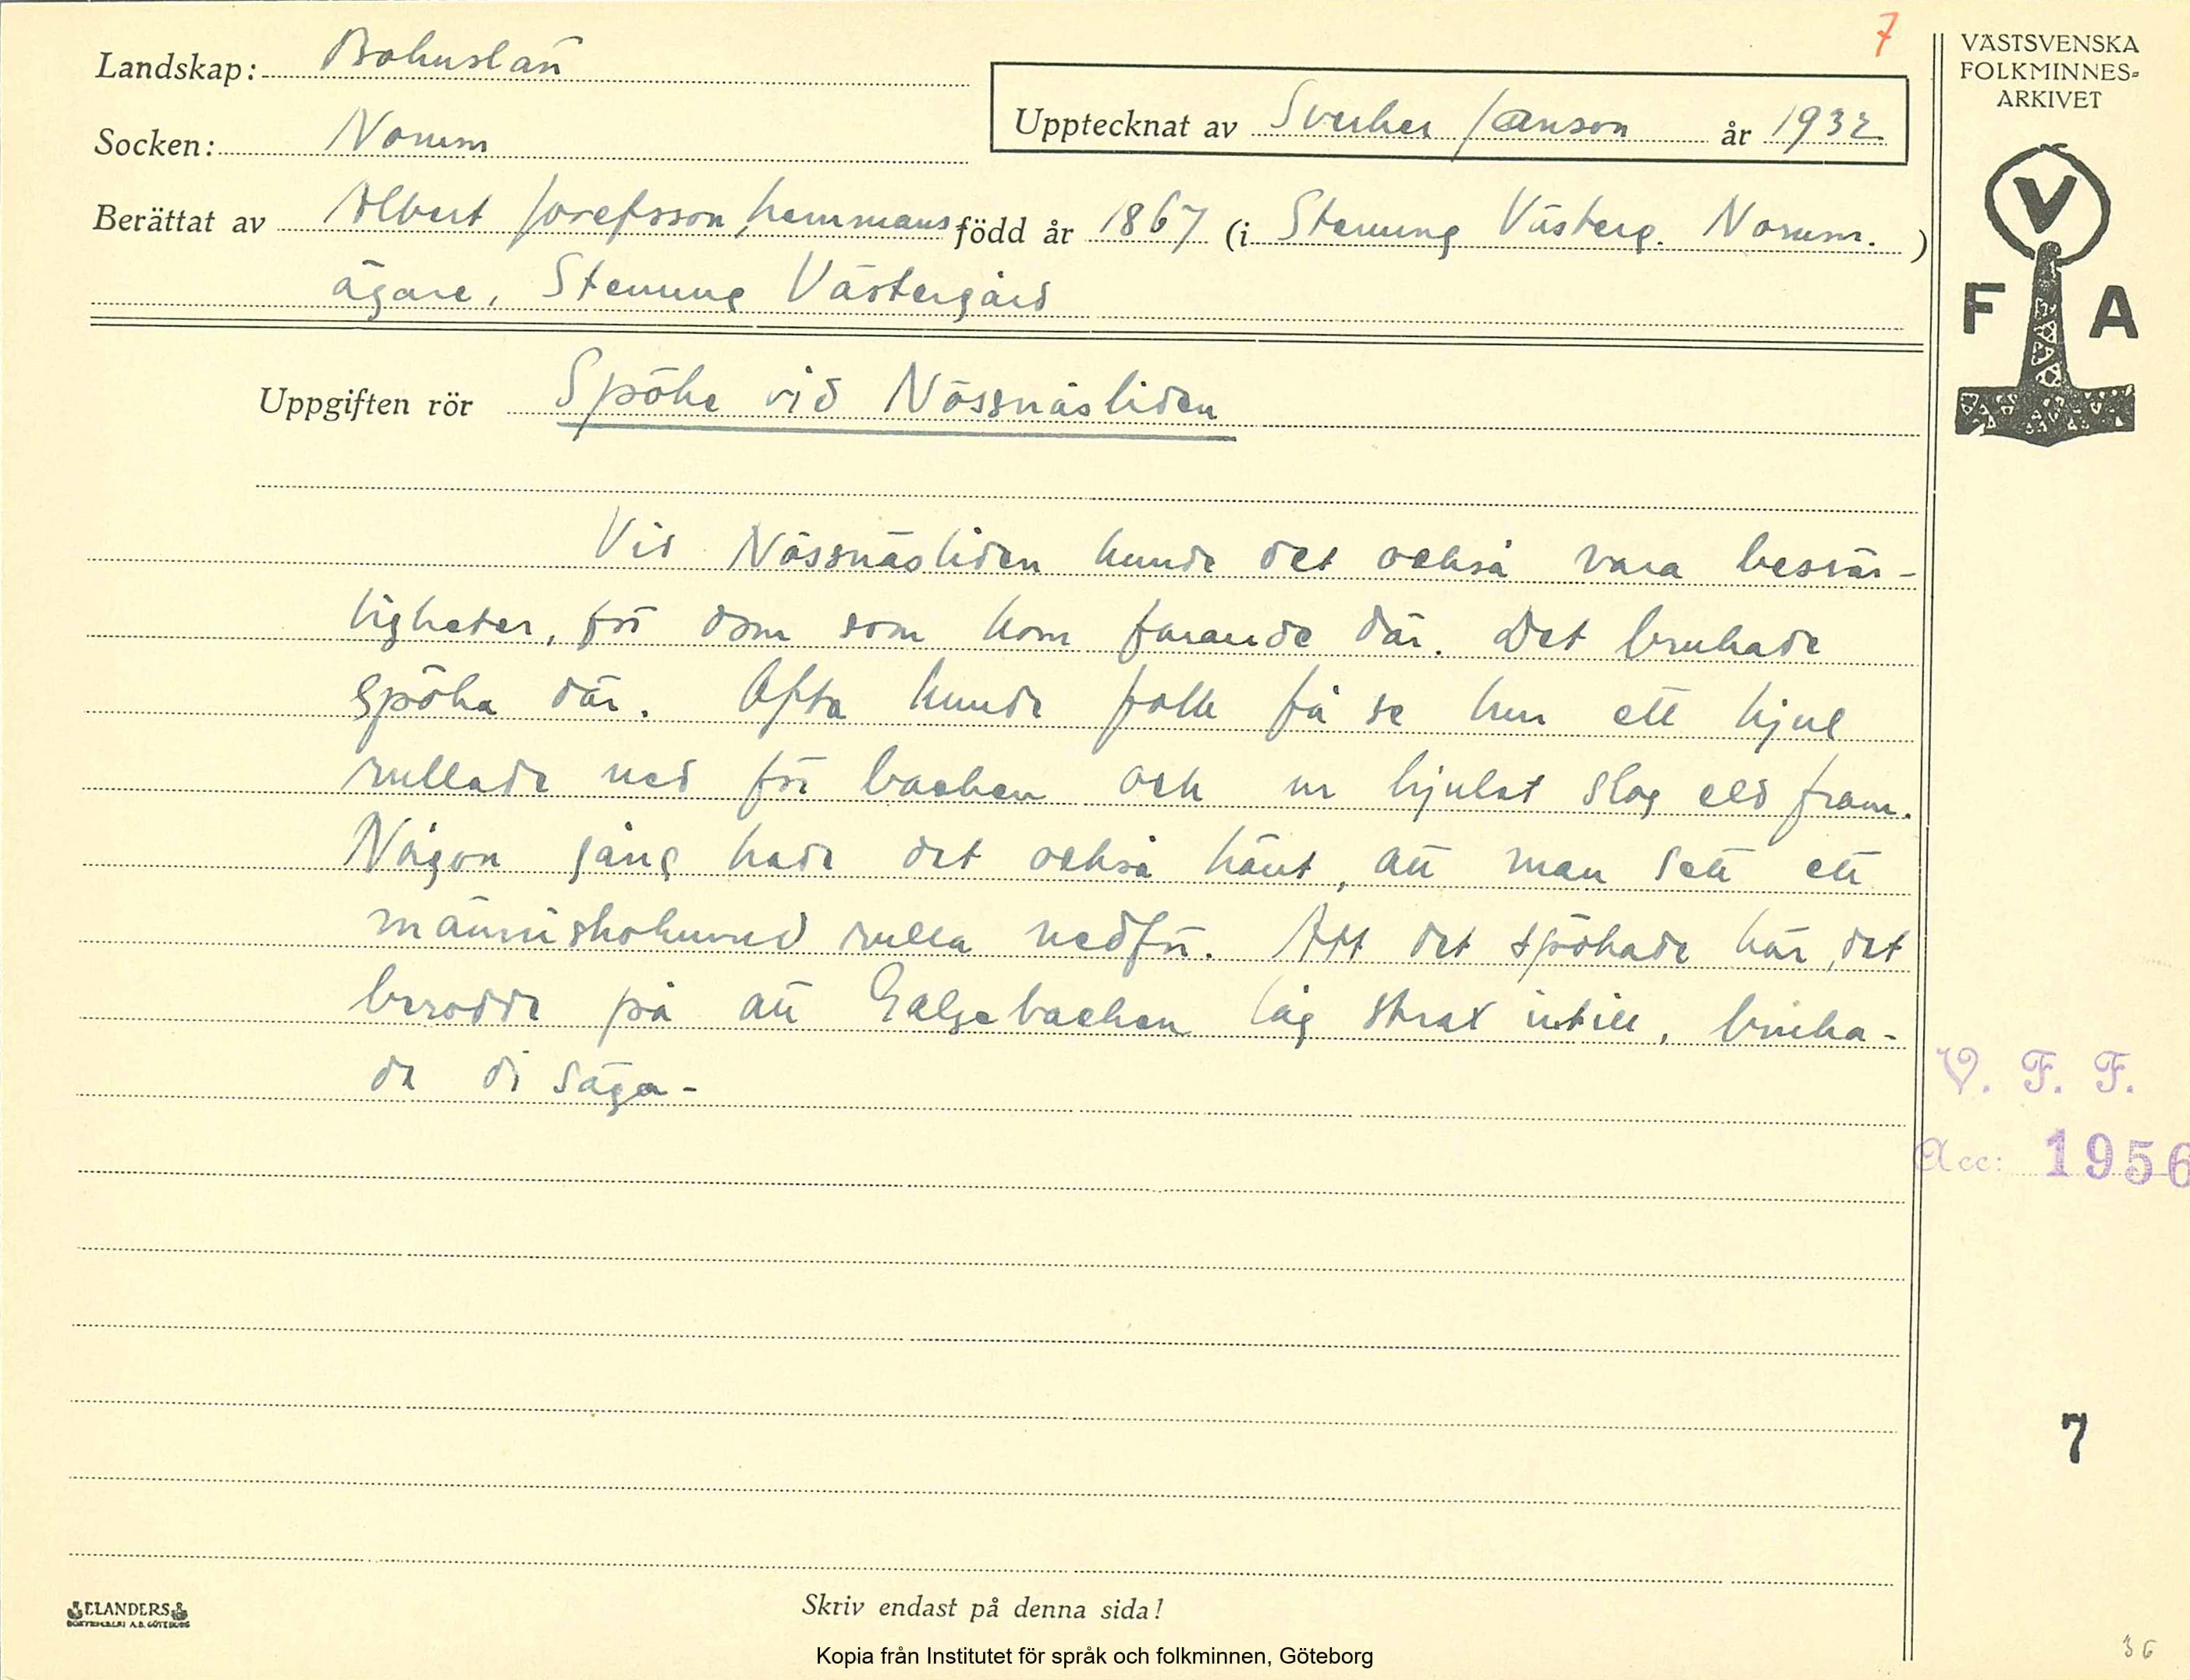 7
Landskap: Bohuslän
Socken: Norum
Upptecknat av Sverker Janson år 1932
Berättat av Albert Josefsson, hemmans född år 1867 (i Stenung Västerg. Norum.)
ägare, Stenung Västergård
VÄSTSVENSKA
FOLKMINNES-
ARKIVET
V
F A
Uppgiften rör Spöke vid Nössnäsliden
Vid Nössnäsliden kunde det också vara besvär-
ligheter, för dom som kom farande där. Det brukade
spöka där. Ofta kunde folk få se hur ett hjul
rullade ned för backen och ur hjulet slog eld fram.
Någon gång hade det också hänt, att man sett ett
människohuvud rulla nedför. Att det spökade här, det
berodde på att Galgebacken låg strax intill, bruka-
de di säga.
V. F. F.
Acc: 1956
7
ELANDERS
BOKTRYCKERI A.B. GÖTEBORG
Skriv endast på denna sida!
Kopia från Institutet för språk och folkminnen, Göteborg
36